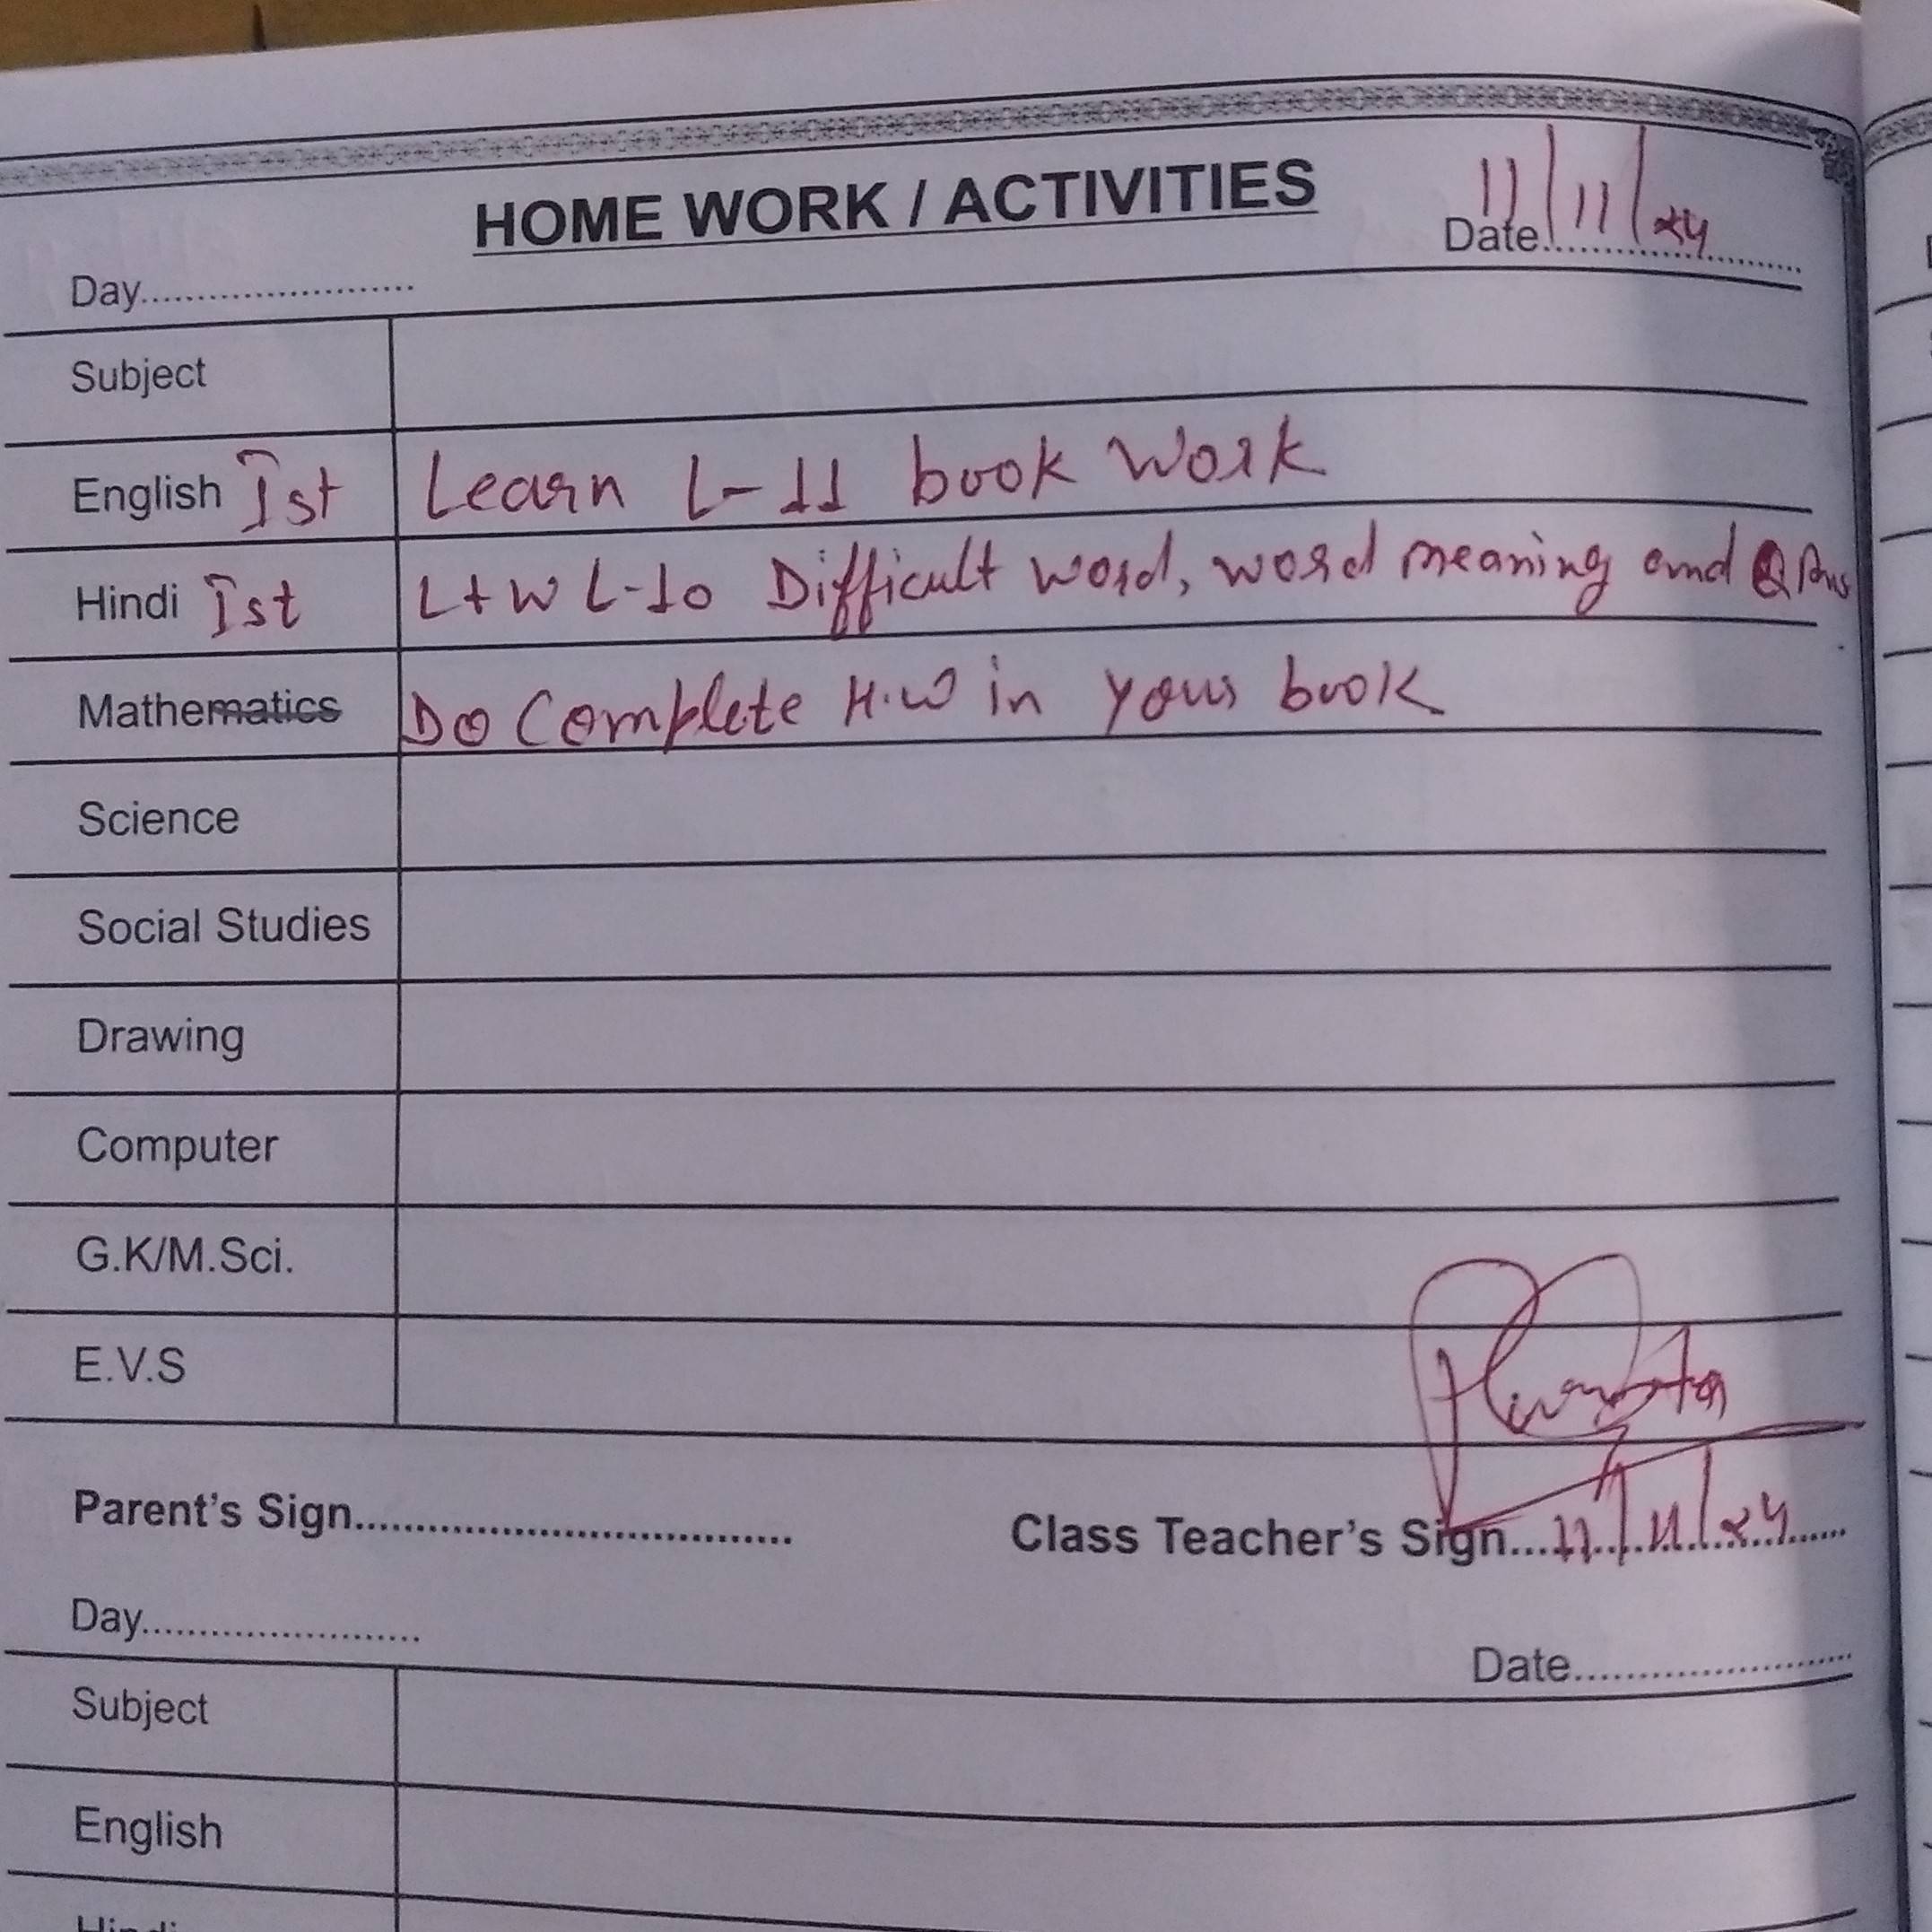 HOME WORK / ACTIVITIES
Day........................ Date 11/11/24
Subject
English Ist Learn L-11 book Work
Hindi Ist L+W L-10 Difficult word, word meaning and Q Ans
Mathematics Do Complete H.W in your book
Science
Social Studies
Drawing
Computer
G.K/M.Sci.
E.V.S
Parent's Sign.................................... Class Teacher's Sign...11/11/24
Day........................
Date........................
Subject
English
Hindi